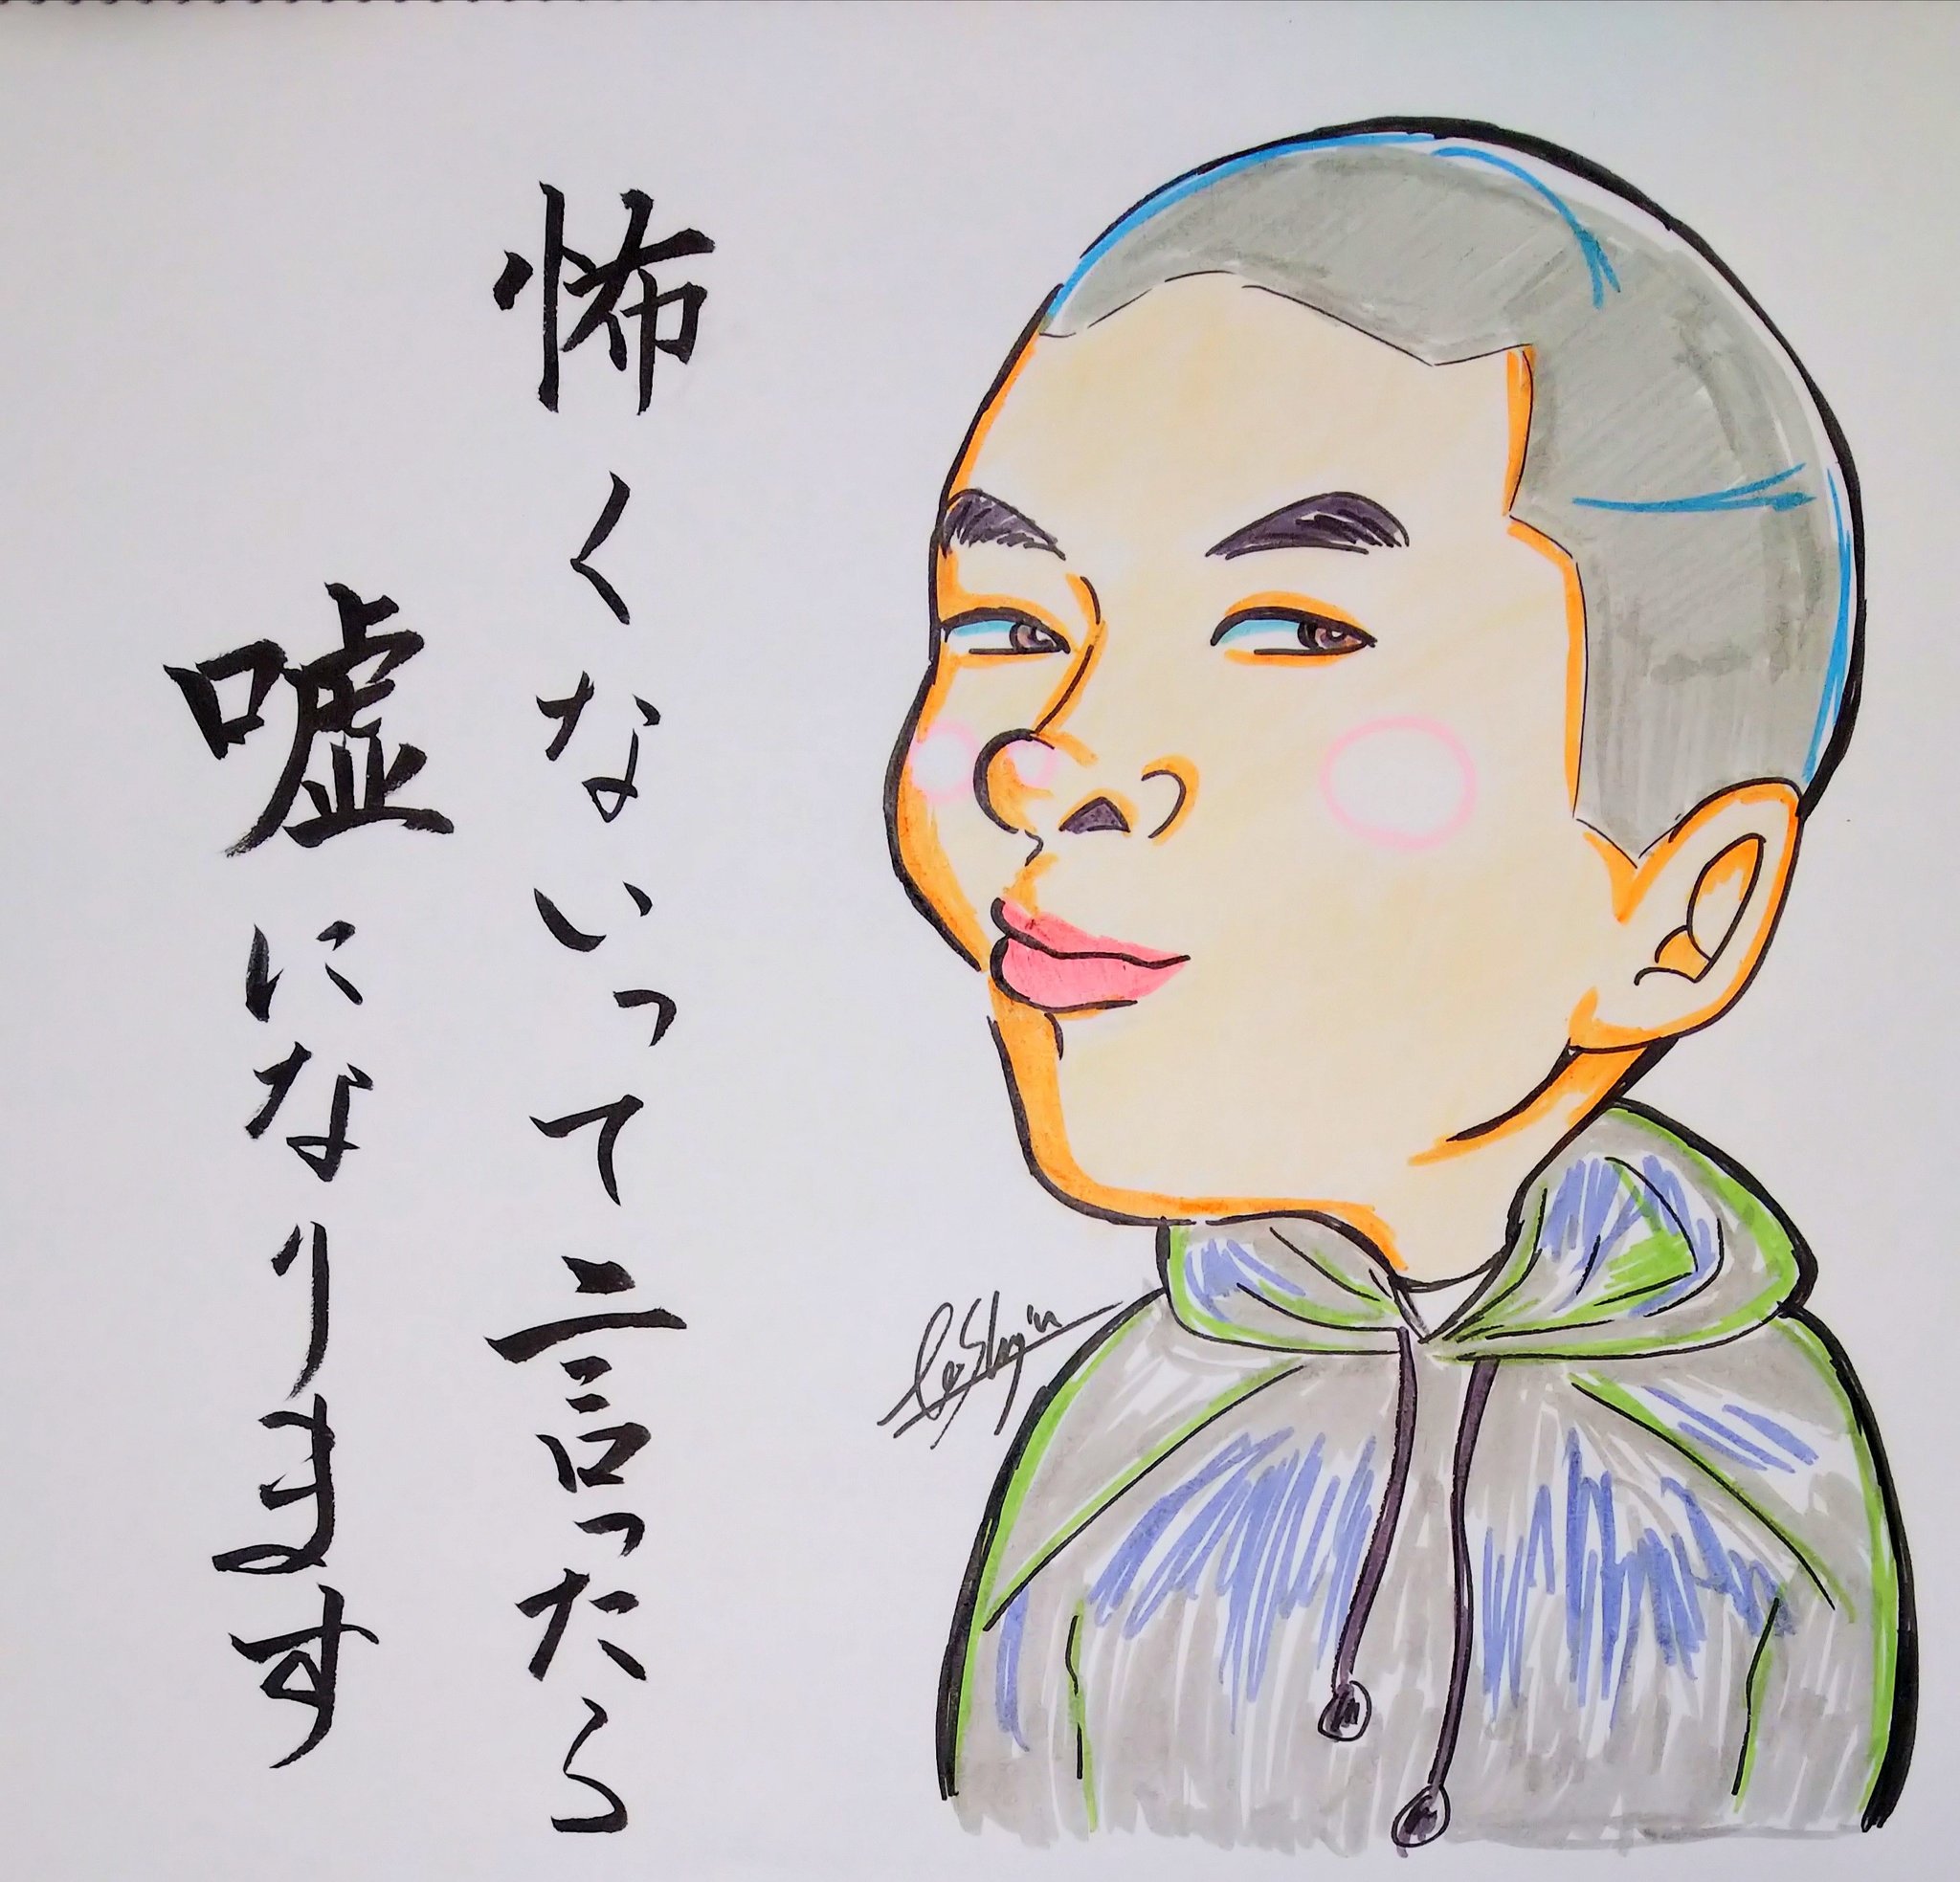 怖くないって言ったら
嘘になります